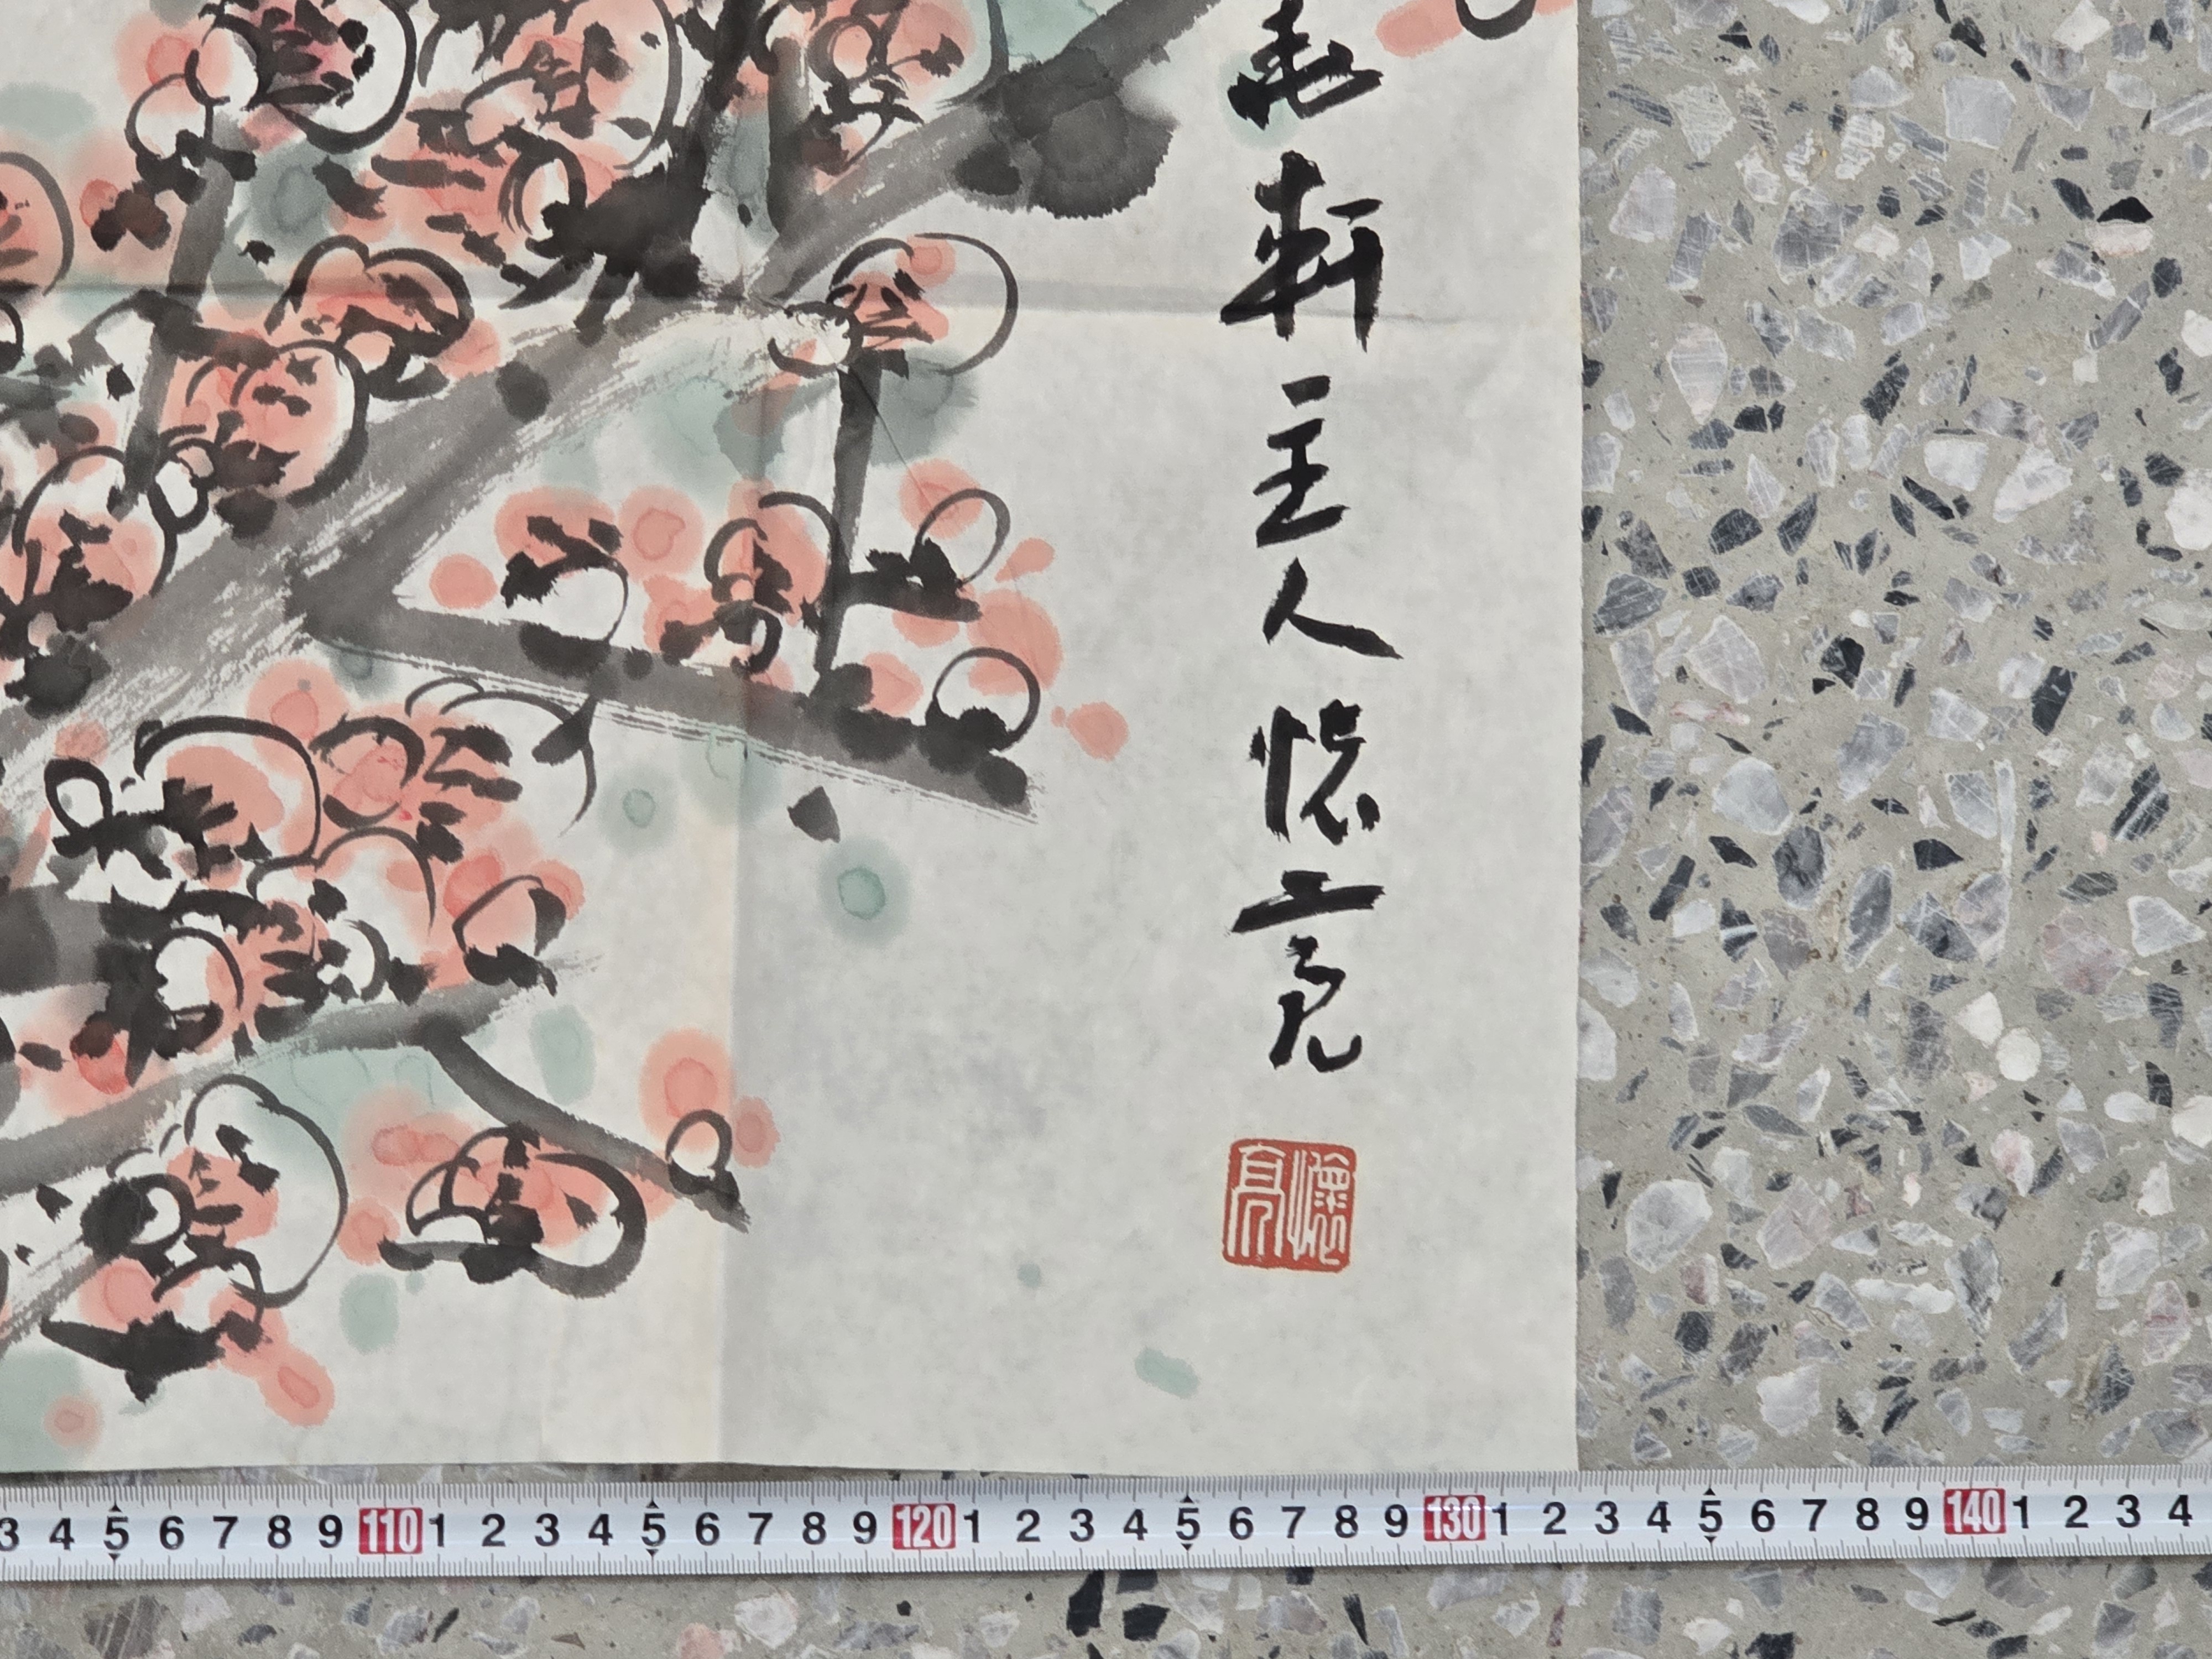 軒主人懷亮
懷亮
3 4 5 6 7 8 9 110 1 2 3 4 5 6 7 8 9 120 1 2 3 4 5 6 7 8 9 130 1 2 3 4 5 6 7 8 9 140 1 2 3 4